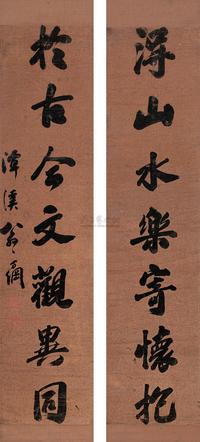 得山水樂寄懷抱
於古今文觀異同
潭溪翁方綱